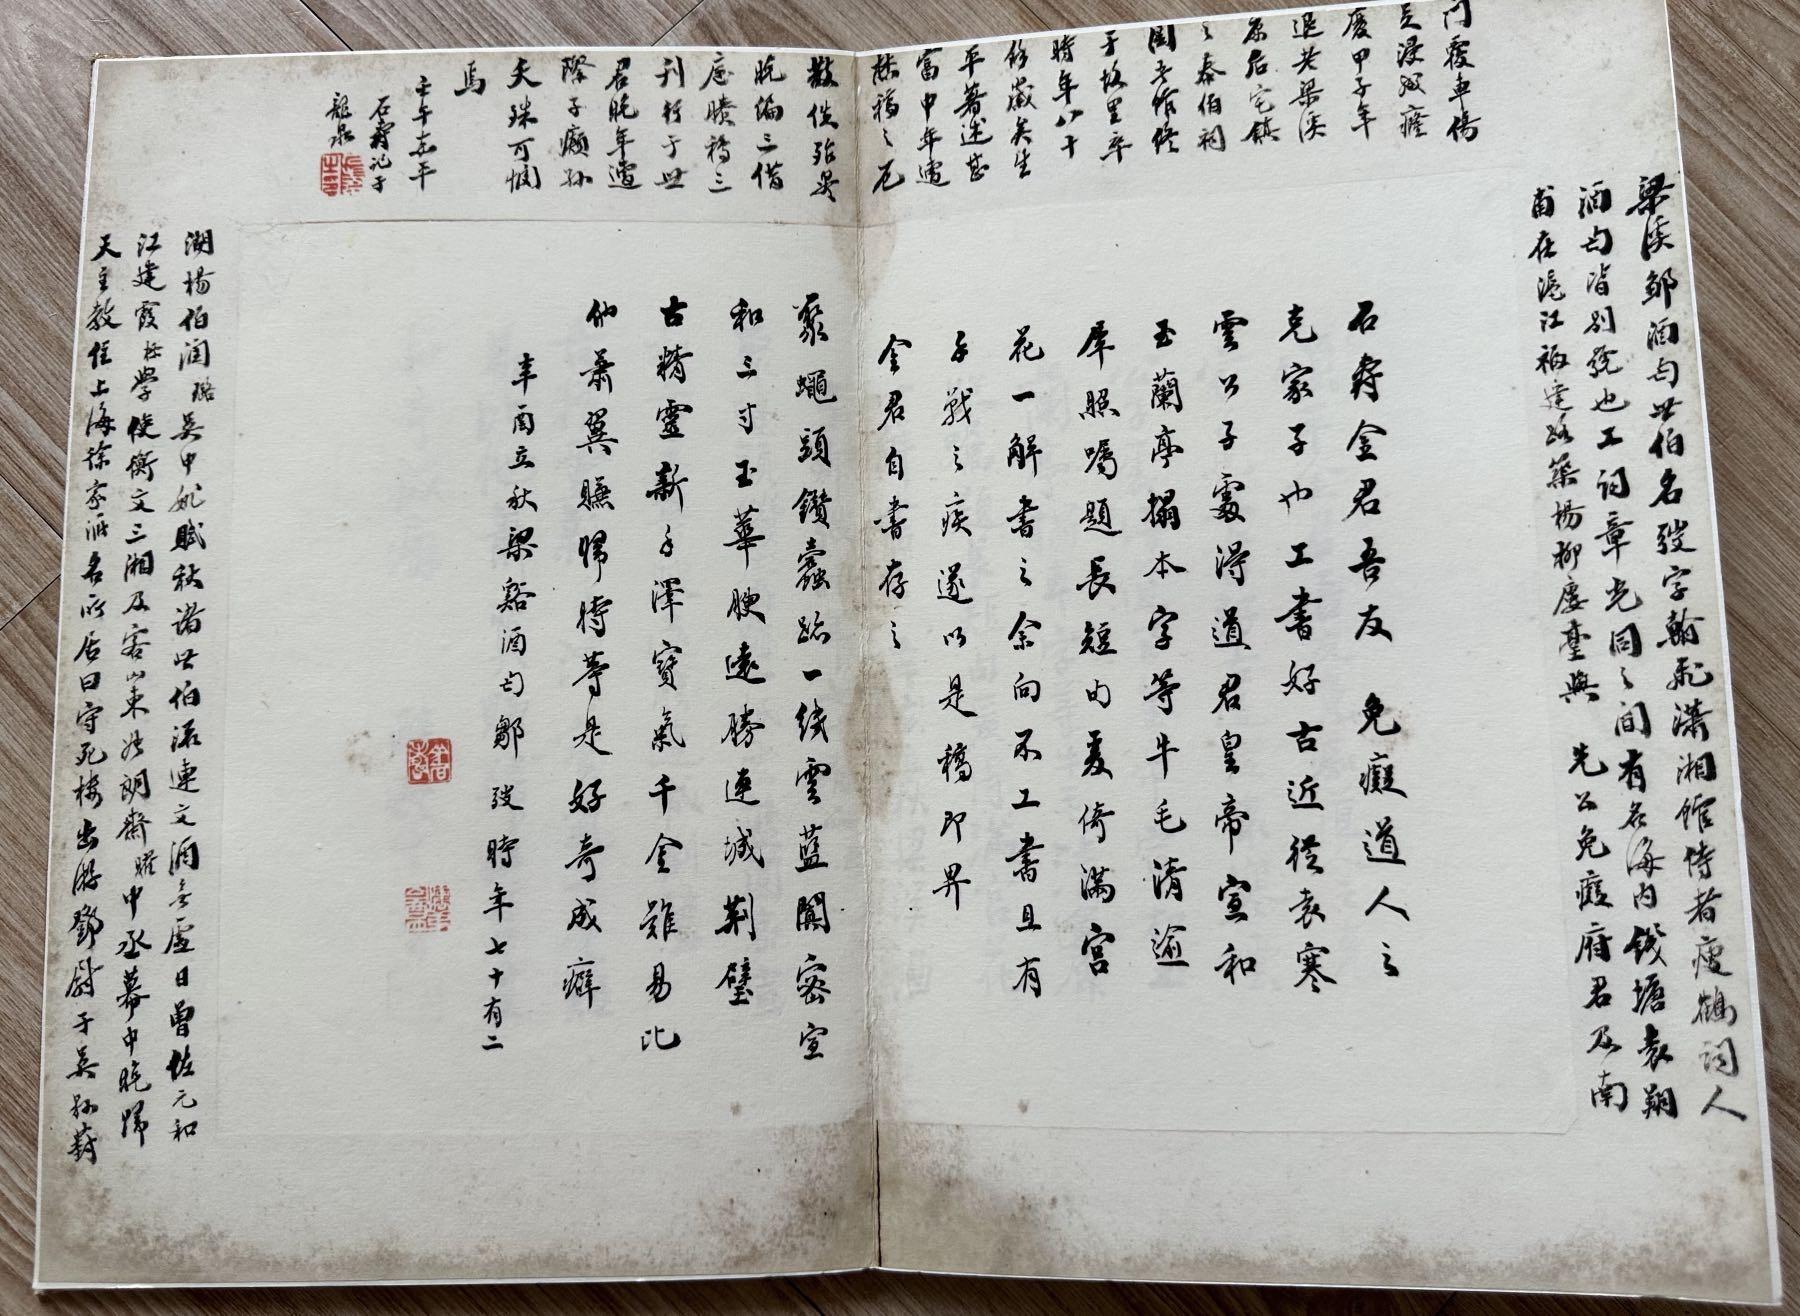 梁溪鄒酒丐世伯名弢字翰飛瀟湘館侍者瘦鶴詞人
酒丐皆別號也工詞章光同之間有名海內錢塘袁翔
甫在滬江福建路築楊柳廔臺與 先公免癡府君及南
湖楊伯潤璐吳中姚賦秋諸世伯流連文酒無虛日曾佐元和
江建霞標學使衡文三湘及客山東張朗齋曜中丞幕中晚歸
天主教住上海徐家匯名所居曰守死樓出游鄧尉于吳縣葑
門覆車傷
足浸致癃
廢甲子年
退老梁溪
原居宅鎮
之泰伯祠
于故里卒
時年八十
餘歲矣生
平著述甚
富中年遭
焚稿之厄
散佚殆
晚編三借
廬賸稿三
刊行于世
君晚年遭
際子癲孫
夭殊可憫
焉
壬午嘉平
石壽記于
龍泉
石壽金君吾友 免癡道人之
克家子也工書好古近從袁寒
雲公子處得道君皇帝宣和
玉蘭亭搨本字等牛毛清逾
犀照囑題長短句爰倚滿宮
花一解書之余向不工書且有
手戰之疾遂以是稿即畀
金君自書存之
聚蠅頭鑽蠹跡一綫雲藍闌密宣
和三寸玉華腴遠勝連城荊璧
古精靈新手澤寶氣千金難易比
他蕭翼賺歸時等是好奇成癖
辛酉立秋梁谿酒丐鄒弢時年七十有二